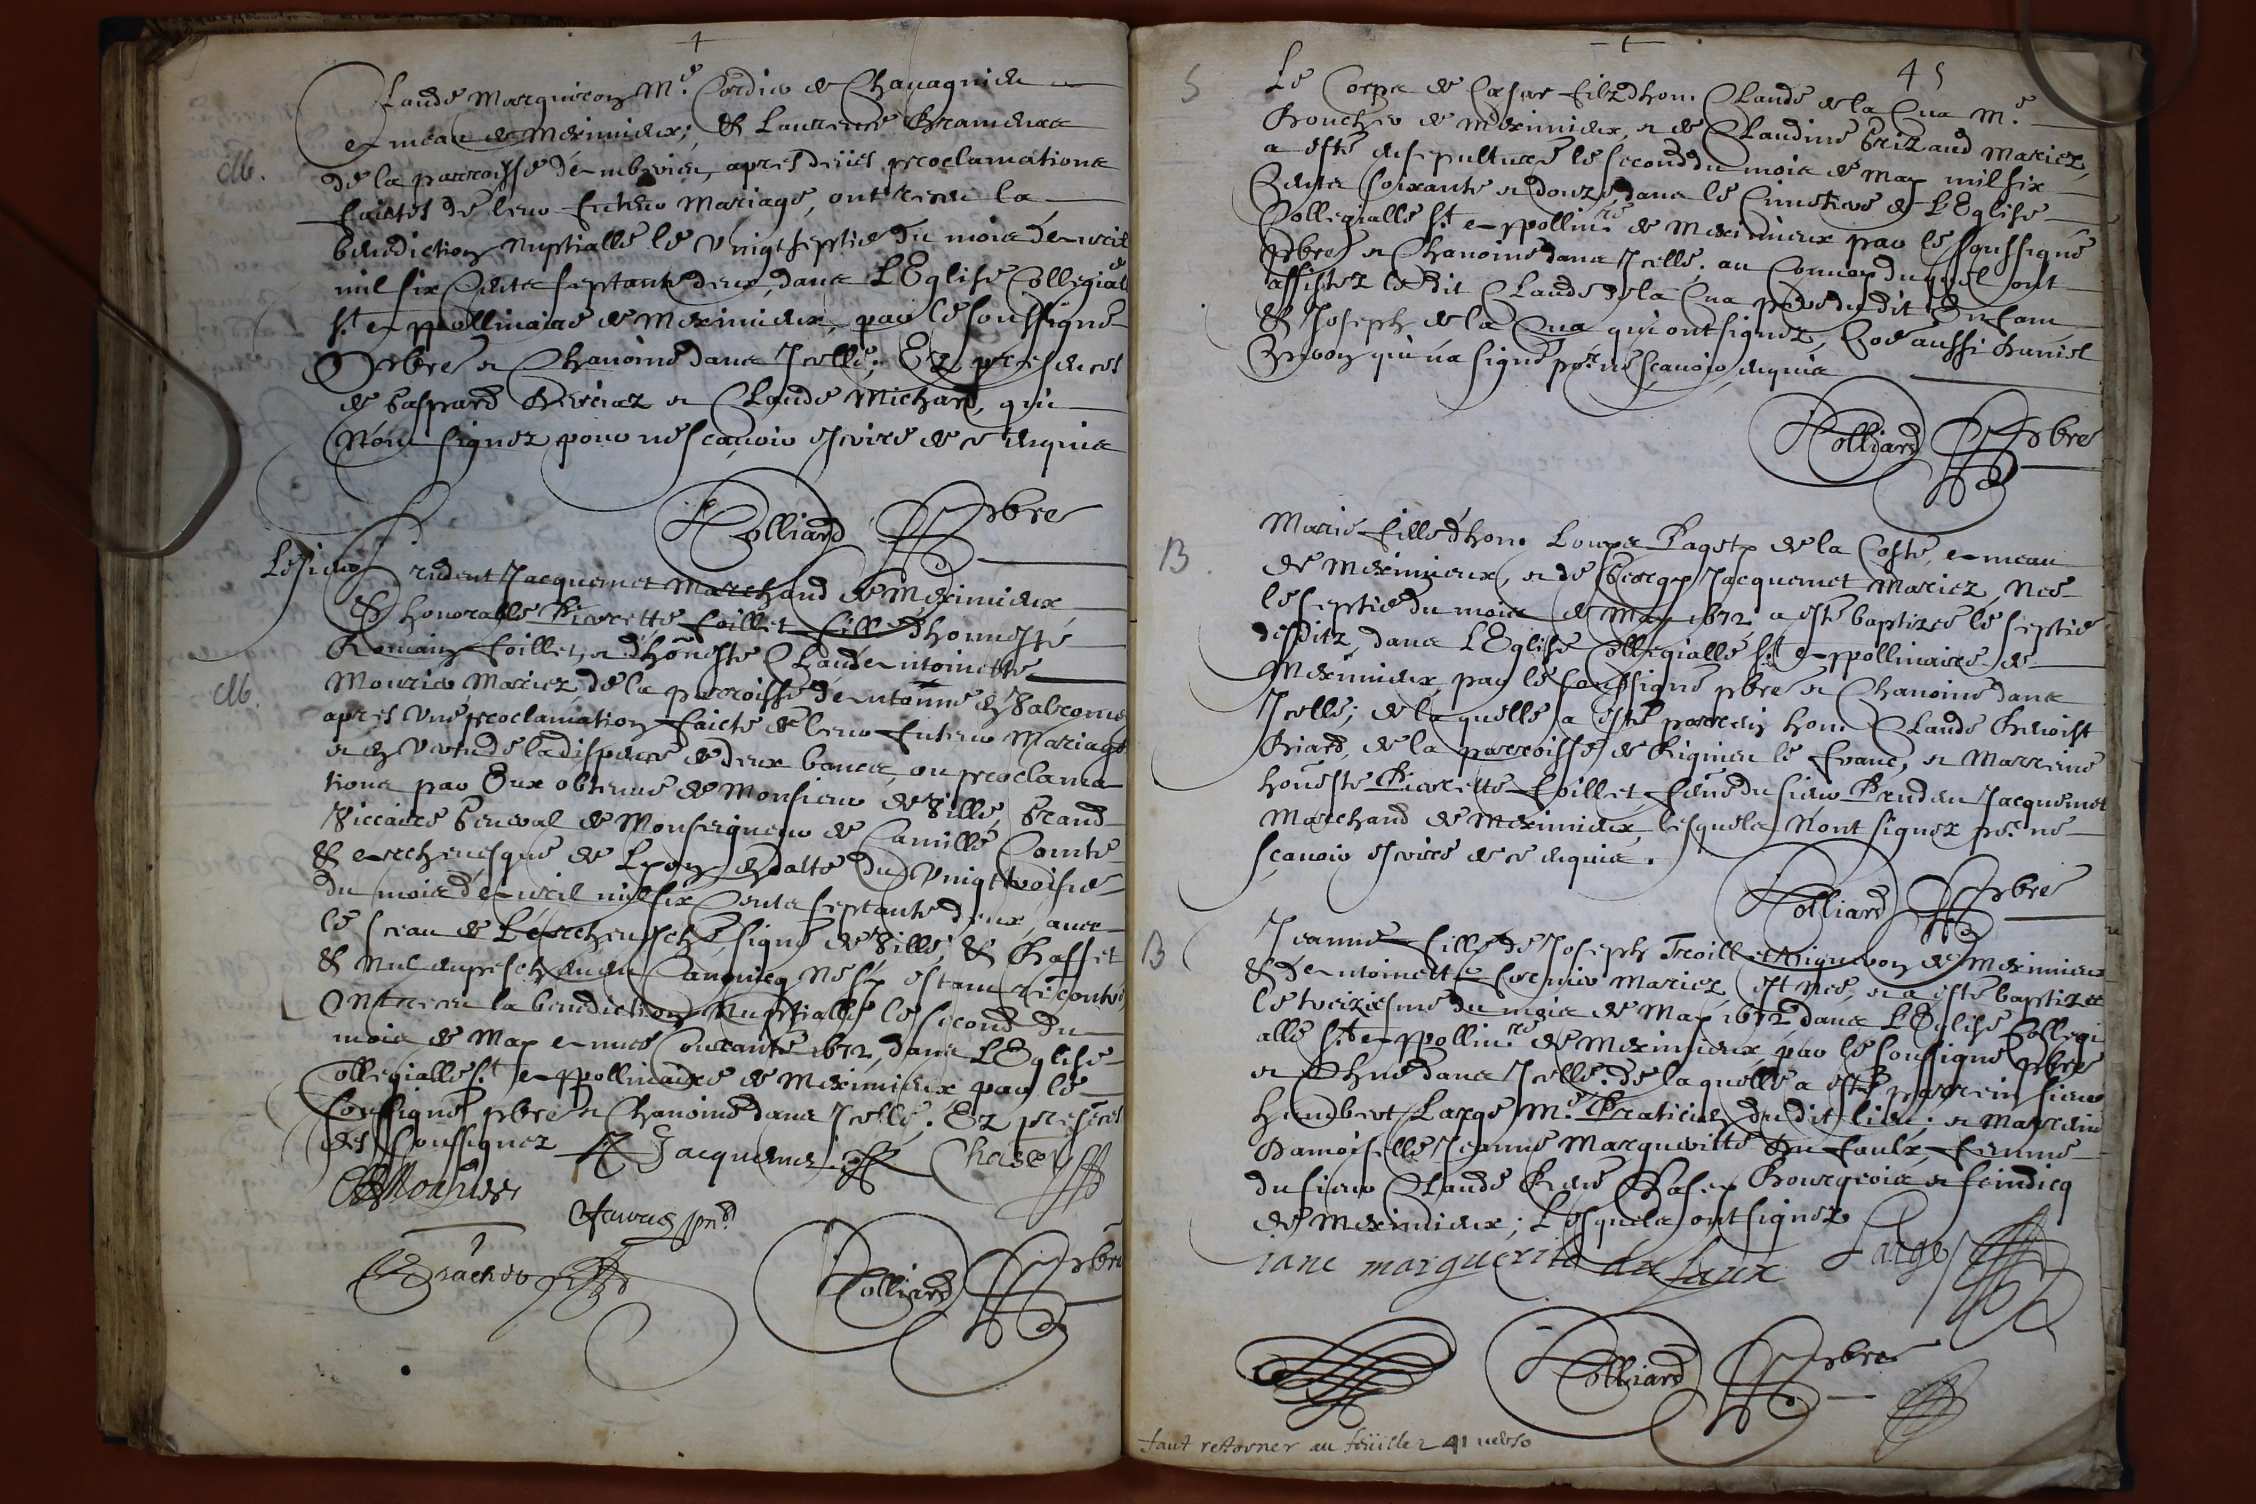 Claude Marguiron M.e Cordier de Chavagnieu
Annean de Meximieux; & Laurence Bramerel
M.
de la parroisse d'Ambérieu, apres deües proclamations
faictes de leur futeur Mariage, ont receu la
benediction Nuptialle le Vingtseptie du mois d'Avril
mil six Cents septante deux, dans L'Eglise Collegialle
S.t Appollinaire de Meximieux, par le soussigné
Prbre et Chanoine dans Icelle. Ez presences
de Gaspard et Claude Michard, qui
N'ont signez pour ne sçavoir escrire de ce enquis
Rolliard Prbre
Le sieur Prudent Jacquemet Marchand de Meximieux
& honorable Pierrette Foillet fille d'honneste
Romain Foillet, et d'honneste Claude Antoinette
M.
Mourier Mariez, de la parroisse de
apres Une proclamation faicte de leur futeur Mariage
et en Vertu de la dispence de deux bancs, ou proclama
tions par Eux obtenue de Monsieur de Ville, Grand
Viccaire General de Monseigneur de Camille Comte
& Archevesque de Lyon en datte du Vingttroisie
du mois d'Avril mil six Cents septante deux, avec
le sceau de L'Archevesché signé de Ville, & Basset
& Nul empeschement Canonicq N'est estant rencontré
Ont receu la benediction Nuptialle le second du
mois de May Année Courante 1672, dans L'Eglise
Collegialle S.t Appollinaire de Meximieux par le
soussigné prbre et Chanoine dans Icelle. Ez presences
des soussignez Jacquemet Chasey
Mourier
Favre pnt
Brachet
Rolliard Prbre
45
S
Le Corps de Cæsar filz d'hon. Claude de la Cua M.e
Boucher de Meximieux, et de Claudine Brizaud Mariez,
a esté ensepulturé le second du mois de May mil six
Cents soixante et douze, dans le Cimetiere de L'Eglise
Collegialle S.t Appollin.re de Meximieux par le soussigné
Prbre et Chanoine dans Icelle. au Convoy duquel ont
assistez ledit Claude de la Cua pere dudit Enfant
& Joseph de la Cua qui ont signez, Et aussi Daniel
qui n'a signé po.r ne sçavoir, enquis
Rolliard Prbre
B.
Marie fille d'hon. Louys Paget de la Coste, Annean
de Meximieux, et de Jacquemet Mariez, Née
le septie du mois de May 1672 a esté baptizée le septie
desditz, dans L'Eglise Collegialle S.t Appollinaire de
Meximieux, par le soussigné prbre et Chanoine dans
Icelle; de laquelle a esté parrain hon. Claude Benoist
Biard, de la parroisse de Rignieu le franc, et Marreine
honeste Pierrette Foillet, feme du sieur Prudent Jacquemet
Marchand de Meximieux, lesquels N'ont signez po.r ne
sçavoir escrire de ce enquis.
Rolliard Prbre
B
Jeanne fille de Joseph Troillet Vigneron de Meximieux
& d'Antoinette Mariez, est née, et a esté baptizée
le treiziesme du mois de May 1672 dans L'Eglise Collegi
alle S.t Appollin.re de Meximieux, par le soussigné Prbre
et Chne dans Icelle. de laquelle a esté parrein sieur
Humbert Large M.e Praticien dudit lieu; et Marreine
Damoiselle Jeanne Margueritte du Faulx, femme
du sieur Claude René Chasey Bourgeois et scindicq
de Meximieux; Lesquels ont signez
iane marguerite du faux Large
Rolliard Prbre
faut retorner au feüillez 41 verso